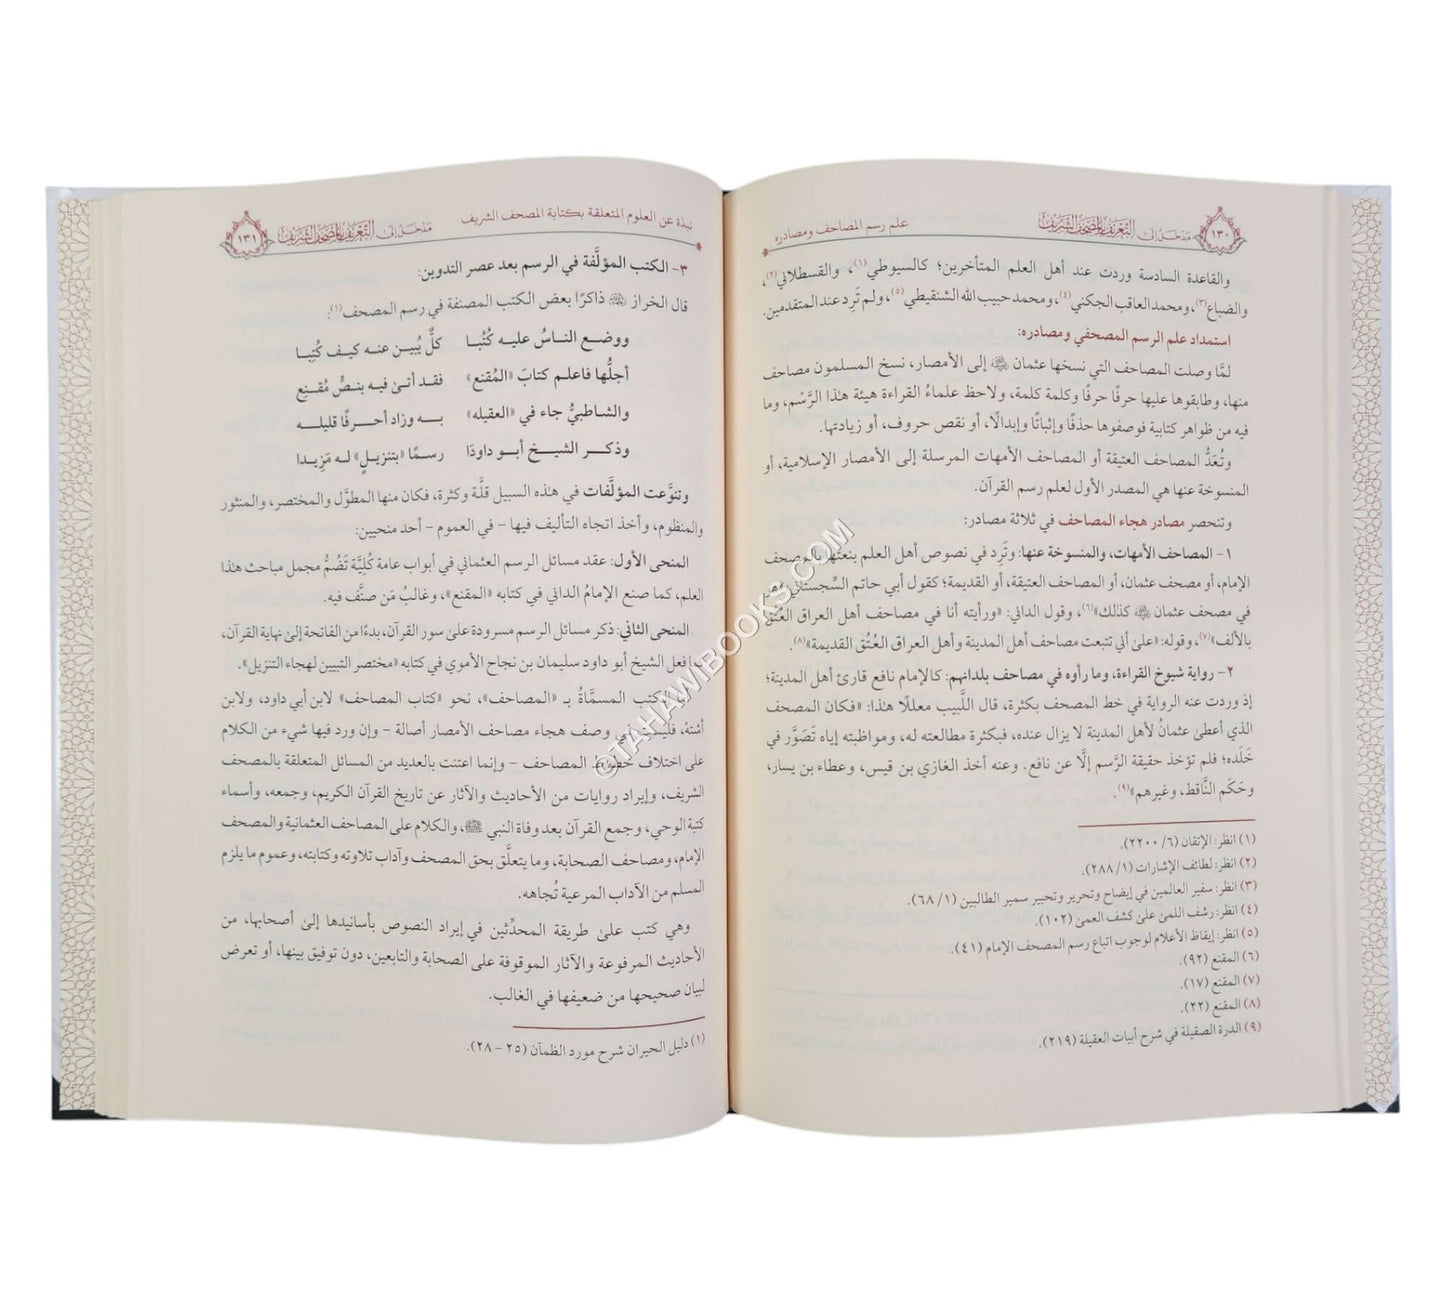 ١٣٠ مدخل إلى التعريف بالمصحف الشريف علم رسم المصاحف ومصادره
والقاعدة السادسة وردت عند أهل العلم المتأخرين؛ كالسيوطي(١)، والقسطلاني(٢)،
والضباع(٣)، ومحمد العاقب الجكني(٤)، ومحمد حبيب الله الشنقيطي(٥)، ولم تَرِد عند المتقدمين.
استمداد علم الرسم المصحفي ومصادره:
لمَّا وصلت المصاحف التي نسخها عثمان ﵁ إلى الأمصار، نسخ المسلمون مصاحف
منها، وطابقوها عليها حرفًا حرفًا وكلمة كلمة، ولاحظ علماءُ القراءة هيئة هٰذا الرَّسْم، وما
فيه من ظواهر كتابية فوصفوها حذفًا وإثباتًا وإبدالًا، أو نقص حروف، أو زيادتها.
وتُعَدُّ المصاحف العتيقة أو المصاحف الأمهات المرسلة إلى الأمصار الإسلامية، أو
المنسوخة عنها هي المصدر الأول لعلم رسم القرآن.
وتنحصر مصادر هجاء المصاحف في ثلاثة مصادر:
١- المصاحف الأمهات، والمنسوخة عنها: وتَرِد في نصوص أهل العلم ينعتها بالمصحف
الإمام، أو مصحف عثمان، أو المصاحف العتيقة، أو القديمة؛ كقول أبي حاتم السِّجستاني:
في مصحف عثمان ﵁ كذلك»(٦)، وقول الداني: «ورأيته أنا في مصاحف أهل العراق العُتُق
بالألف»(٧)، وقوله: «على أني تتبعت مصاحف أهل المدينة وأهل العراق العُتُق القديمة»(٨).
٢- رواية شيوخ القراءة، وما رأوه في مصاحف بلدانهم: كالإمام نافع قارئ أهل المدينة؛
إذ وردت عنه الرواية في خط المصحف بكثرة، قال اللَّبيب معللًا هٰذا: «فكان المصحف
الذي أعطىٰ عثمانُ لأهل المدينة لا يزال عنده، فبكثرة مطالعته له، ومواظبته إياه تَصَوَّر في
خَلَده؛ فلم تؤخذ حقيقة الرَّسم إلَّا عن نافع. وعنه أخذ الغازي بن قيس، وعطاء بن يسار،
وحَكَم النَّاقط، وغيرهم»(٩).
(١) انظر: الإتقان (٦/ ٢٢٠٠).
(٢) انظر: لطائف الإشارات (١/ ٢٨٨).
(٣) انظر: سفير العالمين في إيضاح وتحرير وتحبير سمير الطالبين (١/ ٦٨).
(٤) انظر: رشف اللمىٰ علىٰ كشف العمىٰ (١٠٢).
(٥) انظر: إيقاظ الأعلام لوجوب اتباع رسم المصحف الإمام (٤١).
(٦) المقنع (٩٢).
(٧) المقنع (١٧).
(٨) المقنع (٢٢).
(٩) الدرة الصقيلة في شرح أبيات العقيلة (٢١٩).
نبذة عن العلوم المتعلقة بكتابة المصحف الشريف مدخل إلى التعريف بالمصحف الشريف ١٣١
٣- الكتب المؤلَّفة في الرسم بعد عصر التدوين:
قال الخراز ﵀ ذاكرًا بعض الكتب المصنفة في رسم المصحف(١):
ووضع الناسُ عليه كُتُبا كلٌّ يُبين عنه كيف كُتِبا
أجلُّها فاعلم كتابَ «المُقنع» فقد أتىٰ فيه بنصٍّ مُقنِع
والشاطبيُّ جاء في «العقيله» به وزاد أحرفًا قليله
وذكر الشيخ أبو داودَا رسمًا «بتنزيلٍ» له مَزِيدا
وتنوَّعت المؤلَّفات في هٰذه السبيل قلَّة وكثرة، فكان منها المطوَّل والمختصر، والمنثور
والمنظوم، وأخذ اتجاه التأليف فيها - في العموم - أحد منحيين:
المنحى الأول: عقد مسائل الرسم العثماني في أبواب عامة كُلِّيَّة تَضُمُّ مجمل مباحث هٰذا
العلم، كما صنع الإمامُ الداني في كتابه «المقنع»، وغالبُ مَن صنَّف فيه.
المنحى الثاني: ذكر مسائل الرسم مسرودة علىٰ سور القرآن، بدءًا من الفاتحة إلىٰ نهاية القرآن،
كما فعل الشيخ أبو داود سليمان بن نجاح الأموي في كتابه «مختصر التبيين لهجاء التنزيل».
الكتب المسمَّاةُ بـ «المصاحف»، نحو «كتاب المصاحف» لابن أبي داود، ولابن
أشتهْ، فليست في وصف هجاء مصاحف الأمصار أصالة - وإن ورد فيها شيء من الكلام
على اختلاف خطوط المصاحف - وإنما اعتنت بالعديد من المسائل المتعلقة بالمصحف
الشريف، وإيراد روايات من الأحاديث والآثار عن تاريخ القرآن الكريم، وجمعه، وأسماء
كتبة الوحي، وجمع القرآن بعد وفاة النبي ﷺ، والكلام على المصاحف العثمانية والمصحف
الإمام، ومصاحف الصحابة، وما يتعلَّق بحق المصحف وآداب تلاوته وكتابته، وعموم ما يلزم
المسلم من الآداب المرعية تُجاهه.
وهي كتب علىٰ طريقة المحدِّثين في إيراد النصوص بأسانيدها إلىٰ أصحابها، من
الأحاديث المرفوعة والآثار الموقوفة على الصحابة والتابعين، دون توفيق بينها، أو تعرض
لبيان صحيحها من ضعيفها في الغالب.
(١) دليل الحيران شرح مورد الظمآن (٢٥ - ٢٨).
©TAHAWIBOOKS.COM